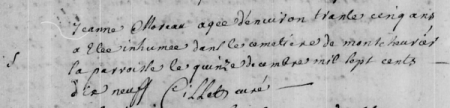 Jeanne Moreau agee denuiron trante cinq ans
a Etee inhumée dans le cemetiere de montcheurier
la parroisse le quinze decembre mil sept cents
dix neuff Cillet curé
S